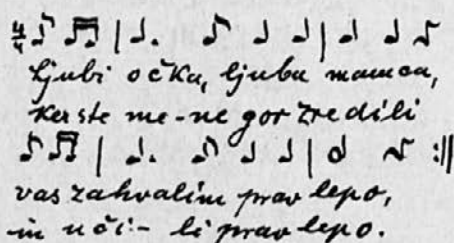 4/4
Ljubi očka, ljuba mamca,
Ker ste me-ne gor zredili
vas zahvalim prav lepo,
in uči- li prav lepo.